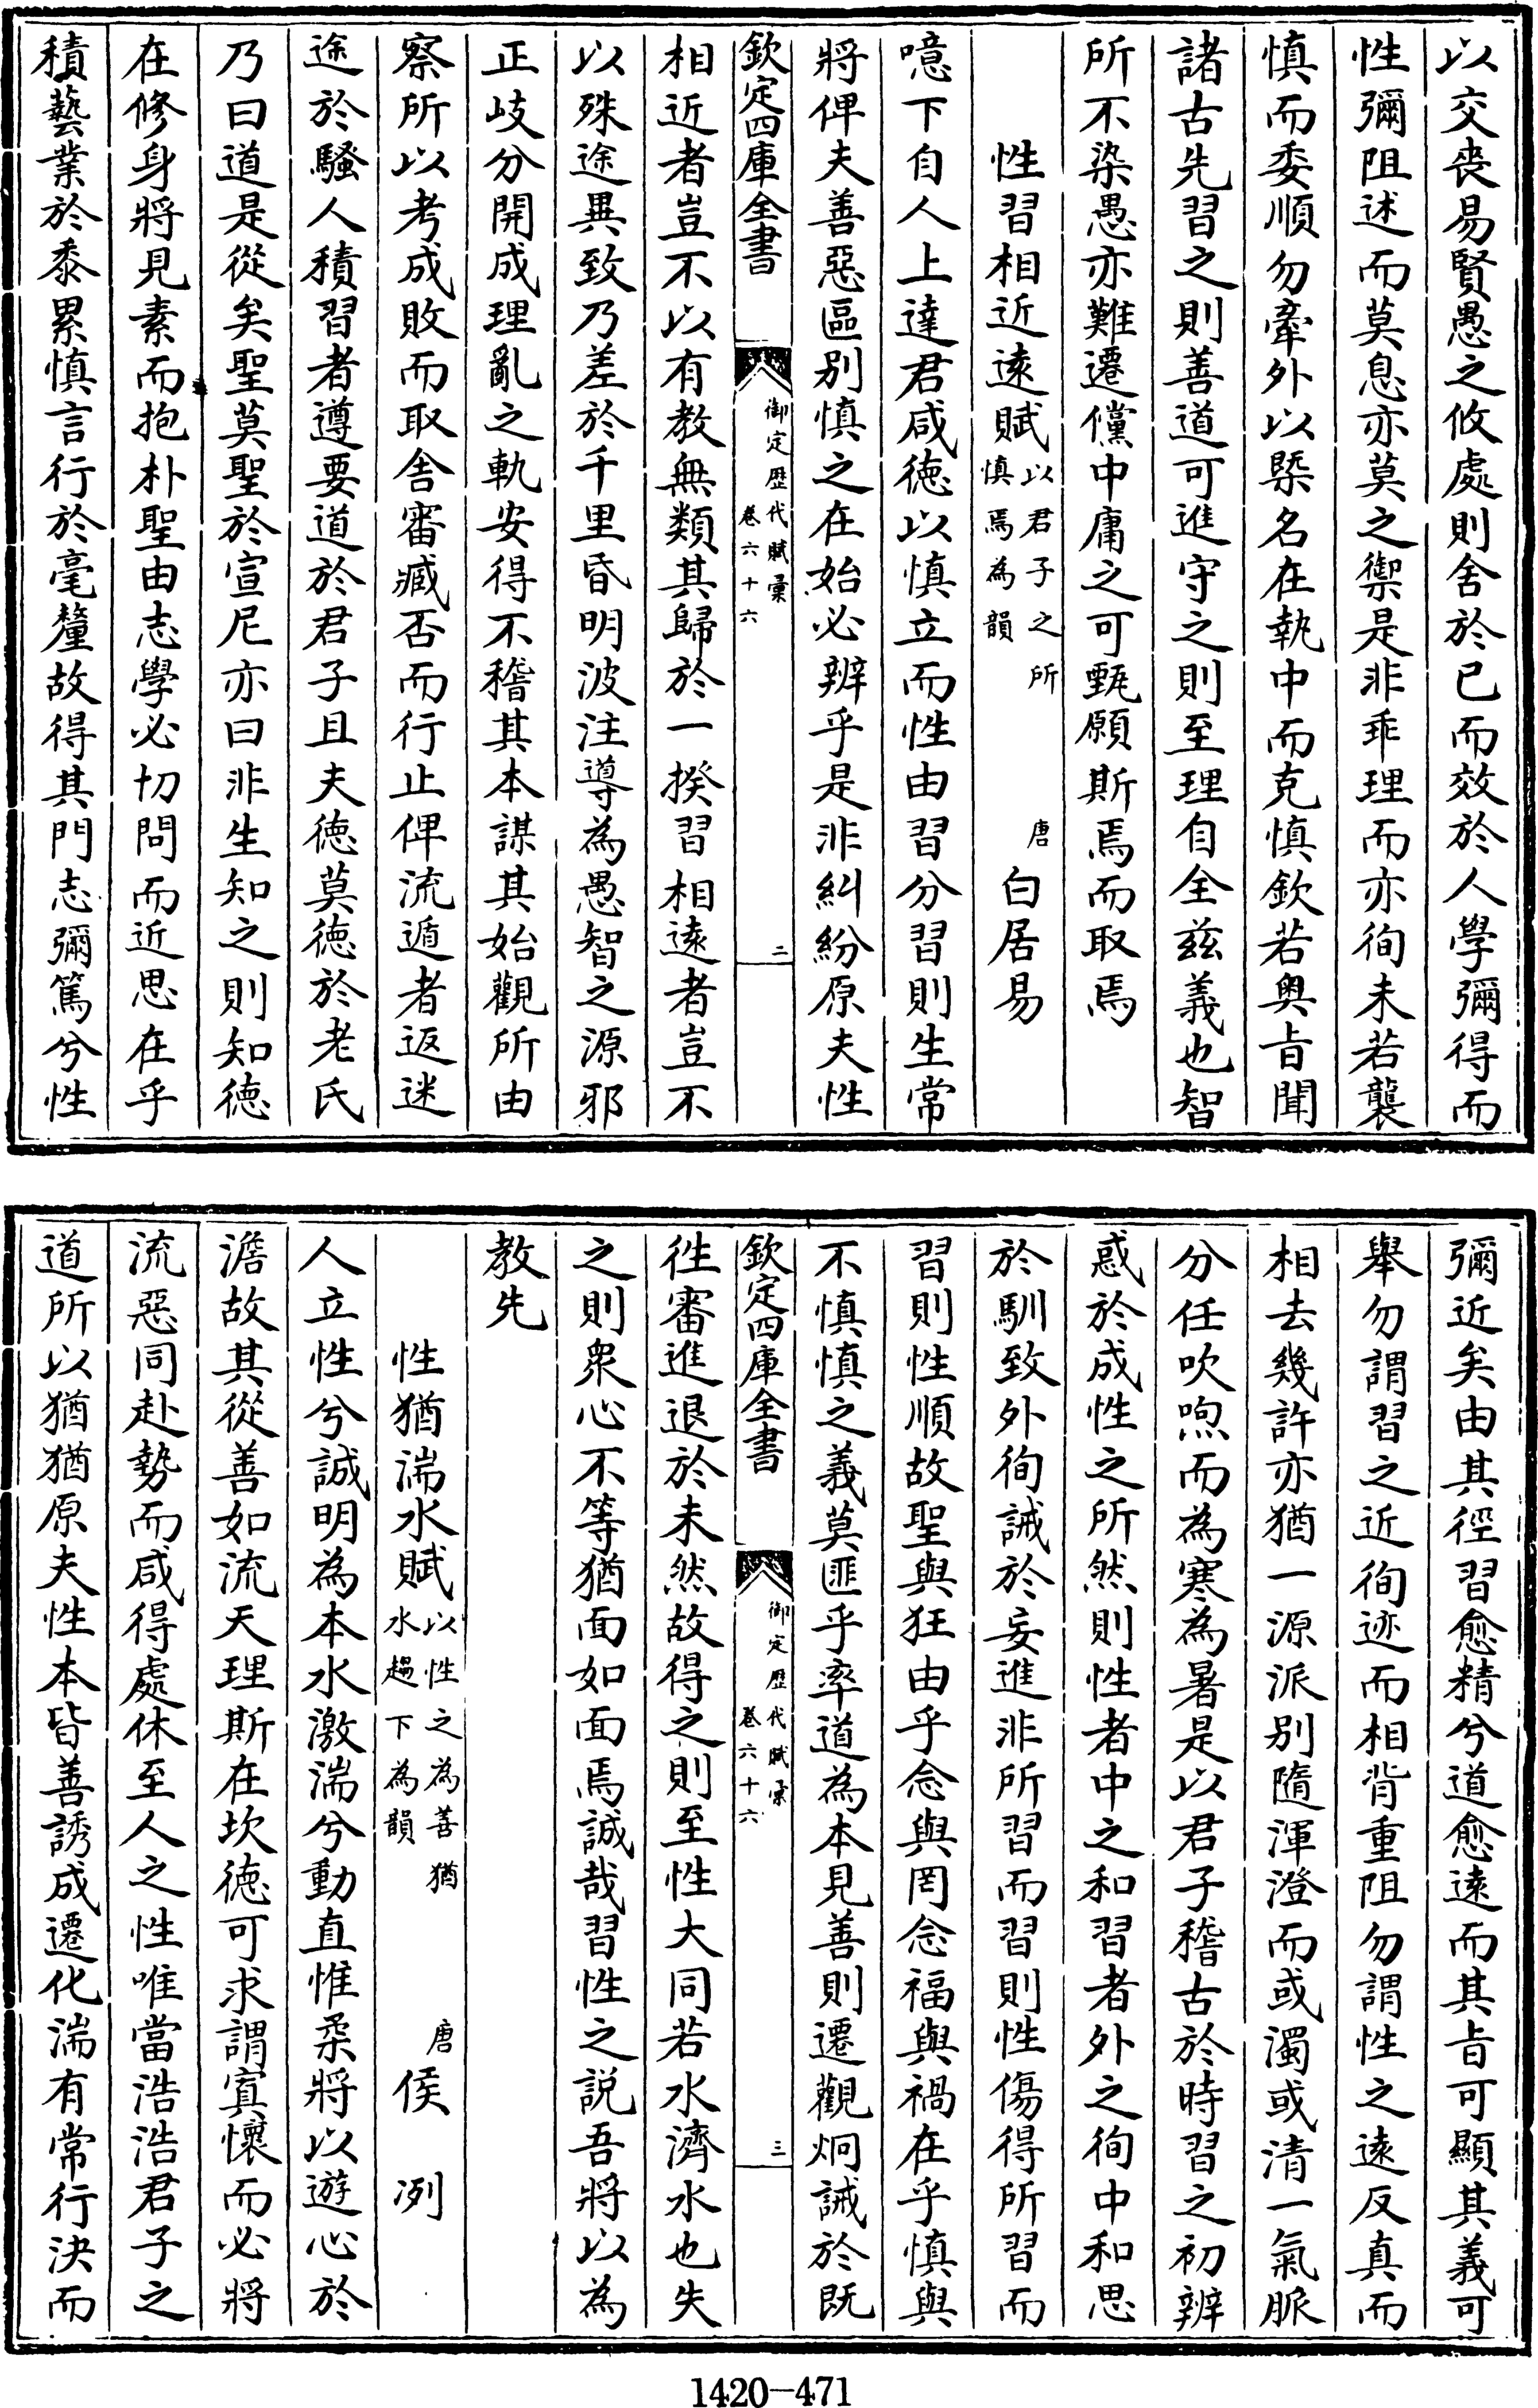 以交喪易賢愚之攸處則舍於已而效於人學彌得而
性彌阻述而莫息亦莫之禦是非乖理而亦徇未若襲
慎而委順勿牽外以槩名在執中而克慎欽若奧旨聞
諸古先習之則善道可進守之則至理自全兹義也智
所不染愚亦難遷儻中庸之可甄願斯焉而取焉
性習相近遠賦以君子之所慎焉為韻 唐白居易
噫下自人上達君咸德以慎立而性由習分習則生常
將俾夫善惡區別慎之在始必辨乎是非糾紛原夫性
欽定四庫全書 御定歷代賦彙卷六十六 二
相近者豈不以有教無類其歸於一揆習相遠者豈不
以殊途異致乃差於千里昏明波注導為愚智之源邪
正歧分開成理亂之軌安得不稽其本謀其始觀所由
察所以考成敗而取舍審臧否而行止俾流遁者返迷
途於騷人積習者遵要道於君子且夫德莫德於老氏
乃曰道是從矣聖莫聖於宣尼亦曰非生知之則知德
在修身將見素而抱朴聖由志學必切問而近思在乎
積藝業於黍累慎言行於毫釐故得其門志彌篤兮性
彌近矣由其徑習愈精兮道愈遠而其旨可顯其義可
舉勿謂習之近徇迹而相背重阻勿謂性之遠反真而
相去幾許亦猶一源派別隨渾澄而或濁或清一氣脈
分任吹喣而為寒為暑是以君子稽古於時習之初辨
惑於成性之所然則性者中之和習者外之徇中和思
於馴致外徇誡於妄進非所習而習則性傷得所習而
習則性順故聖與狂由乎念與罔念福與禍在乎慎與
不慎慎之義莫匪乎率道為本見善則遷觀炯誡於既
欽定四庫全書 御定歷代賦彙卷六十六 三
徃審進退於未然故得之則至性大同若水濟水也失
之則衆心不等猶面如面焉誠哉習性之說吾將以為
教先
性猶湍水賦以性之為善猶水趨下為韻 唐侯冽
人立性兮誠明為本水激湍兮動直惟柔將以遊心於
澹故其從善如流天理斯在坎德可求謂寘懷而必將
流惡同赴勢而咸得處休至人之性唯當浩浩君子之
道所以猶猶原夫性本皆善誘成遷化湍有常行決而
1420-471